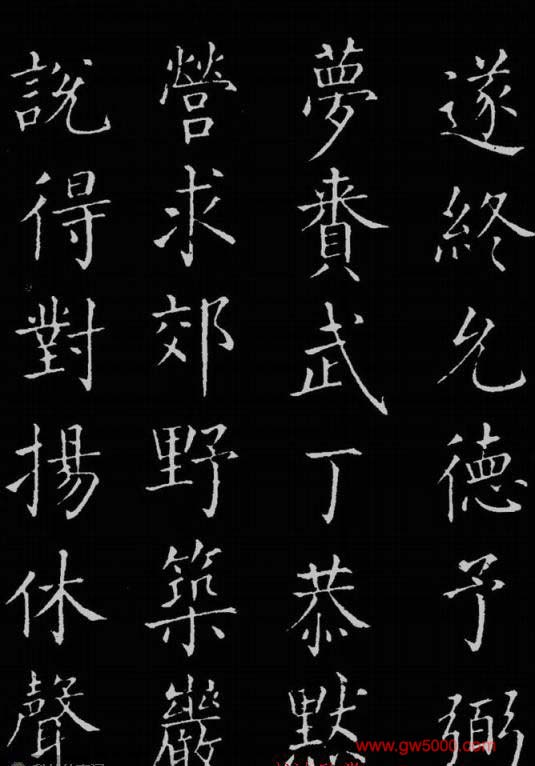 遂終允德予弼
夢賚武丁恭默
營求郊野築巖
說得對揚休聲
www.gw5000.com